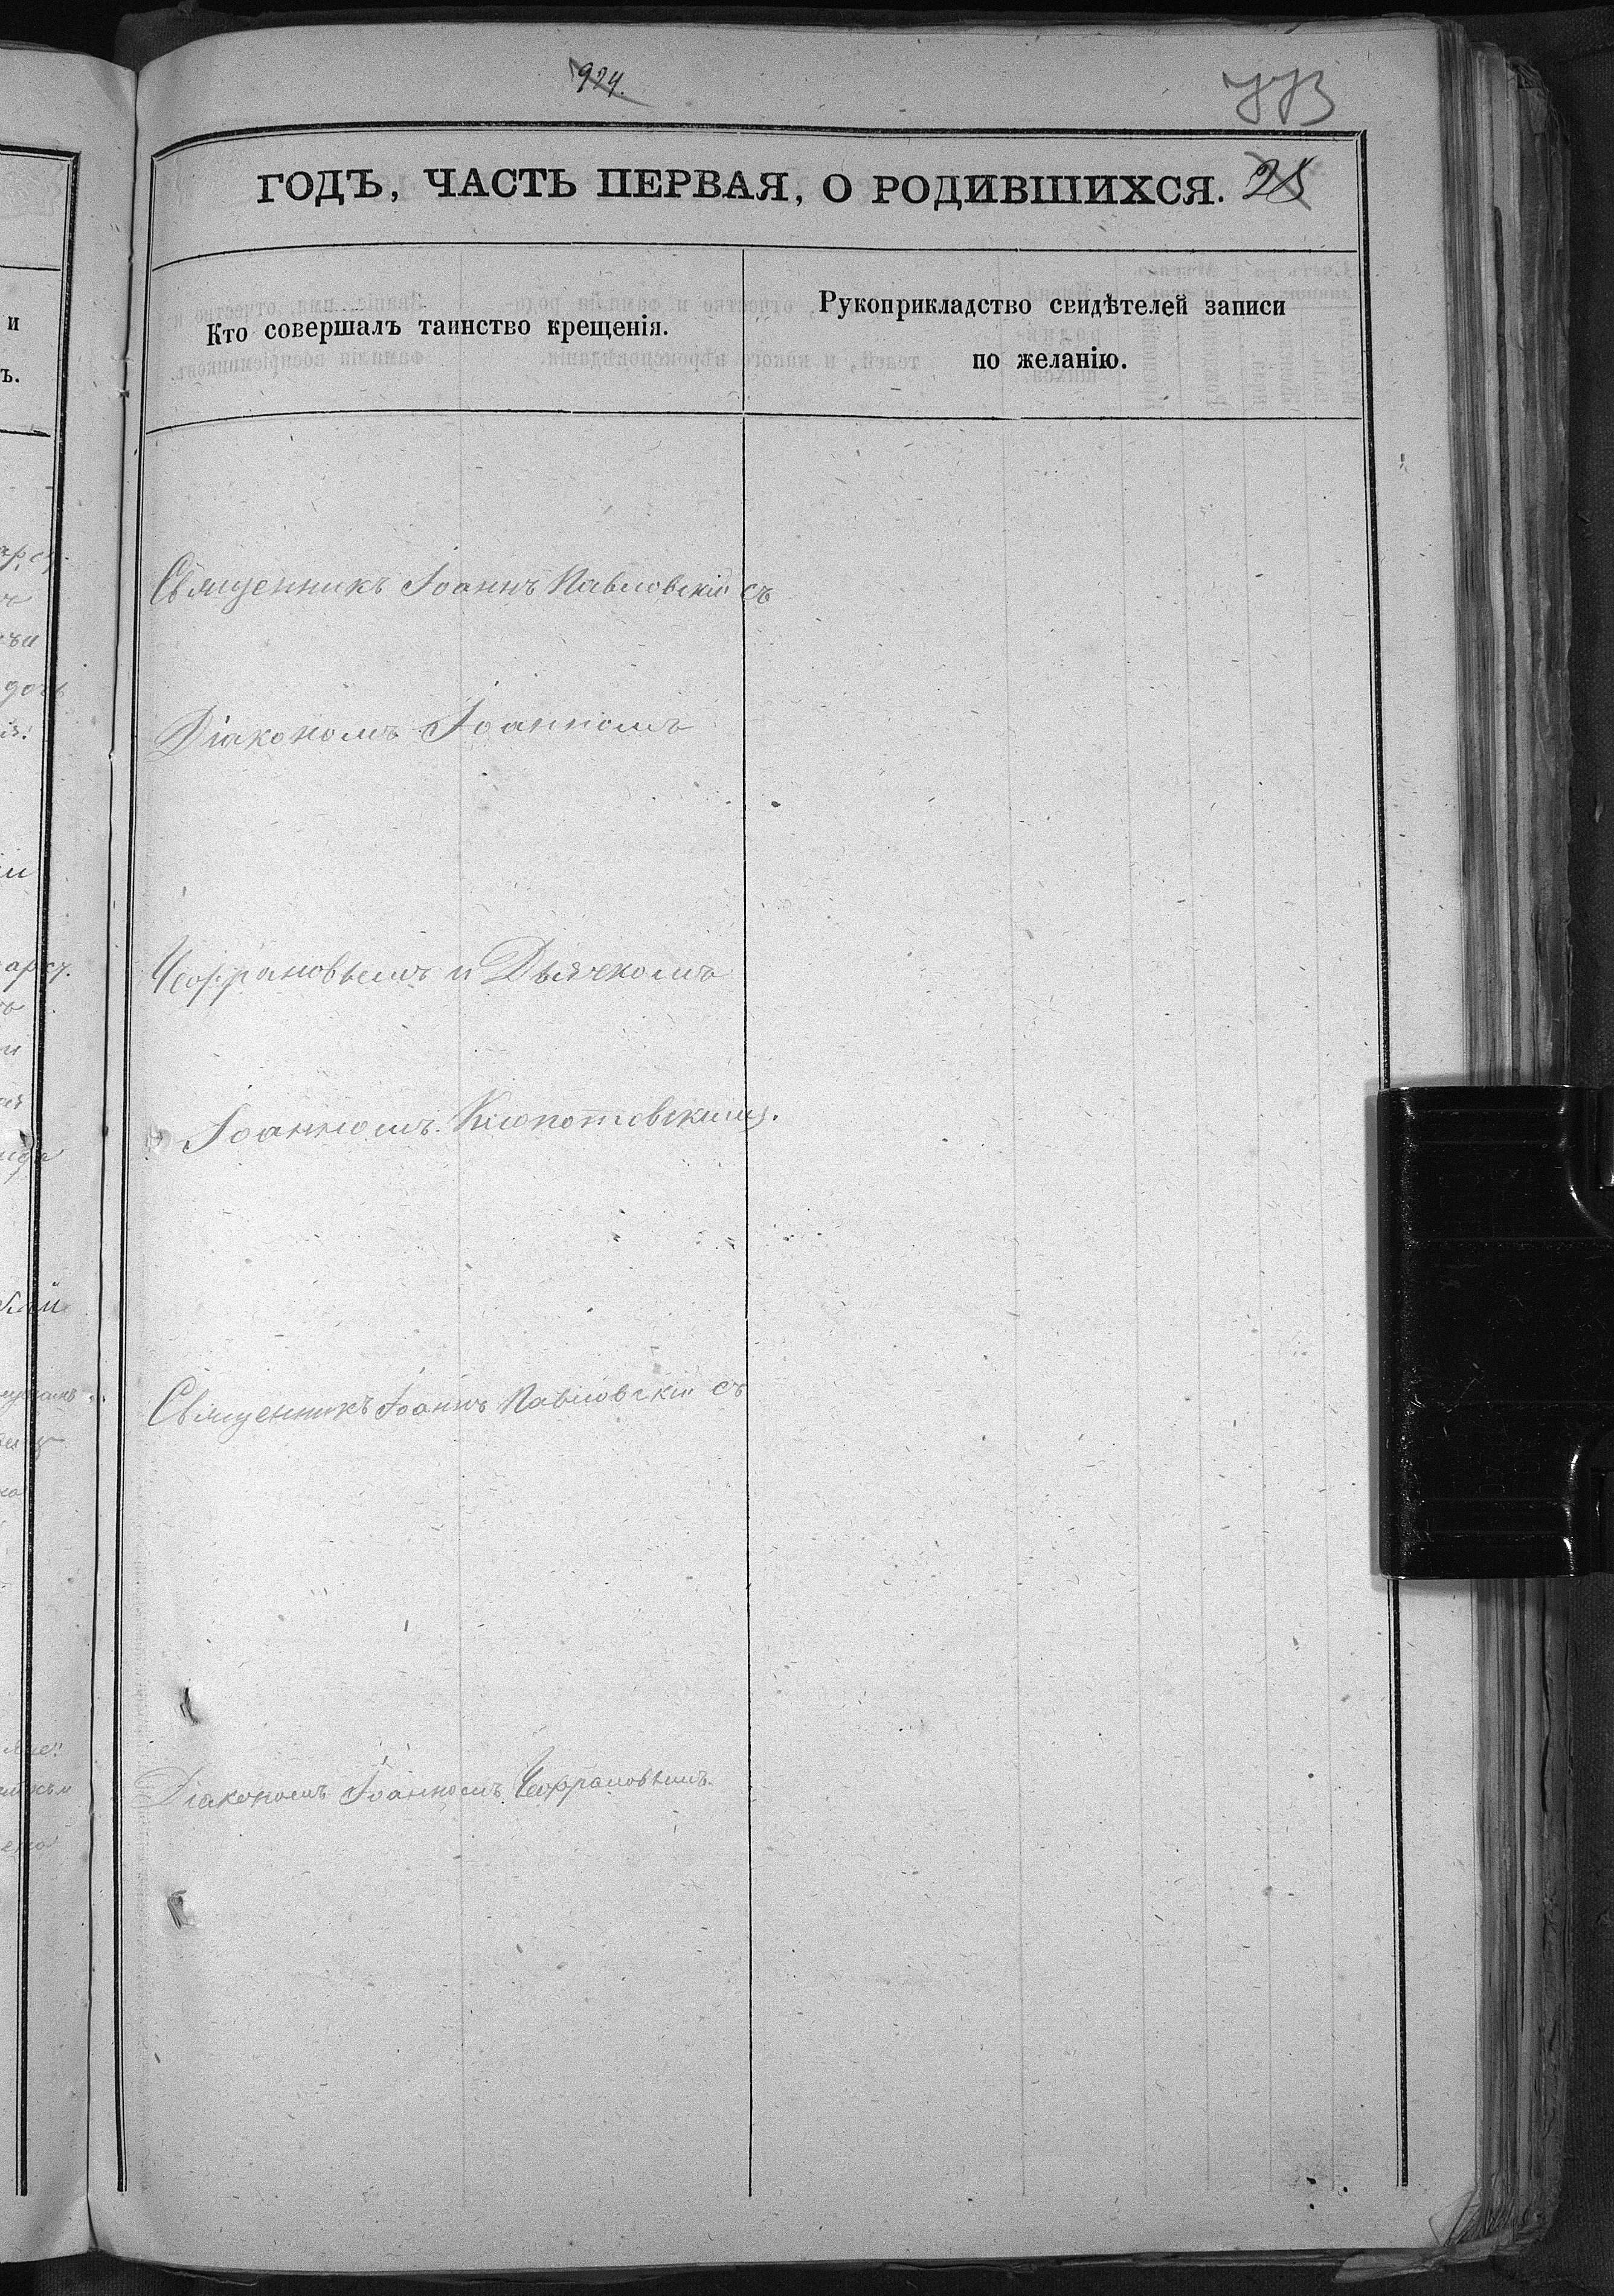 924.
773
ГОДЪ, ЧАСТЬ ПЕРВАЯ, О РОДИВШИХСЯ. 25
Кто совершалъ таинство крещенія.
Рукоприкладство свидѣтелей записи
по желанію.
Священникъ Іоаннъ Павловскій съ
Діакономъ Іоанномъ
Чефрановымъ и Дьячкомъ
Іоанномъ Клопотовскимъ.
Священникъ Іоаннъ Павловскій съ
Діакономъ Іоанномъ Чефрановымъ.